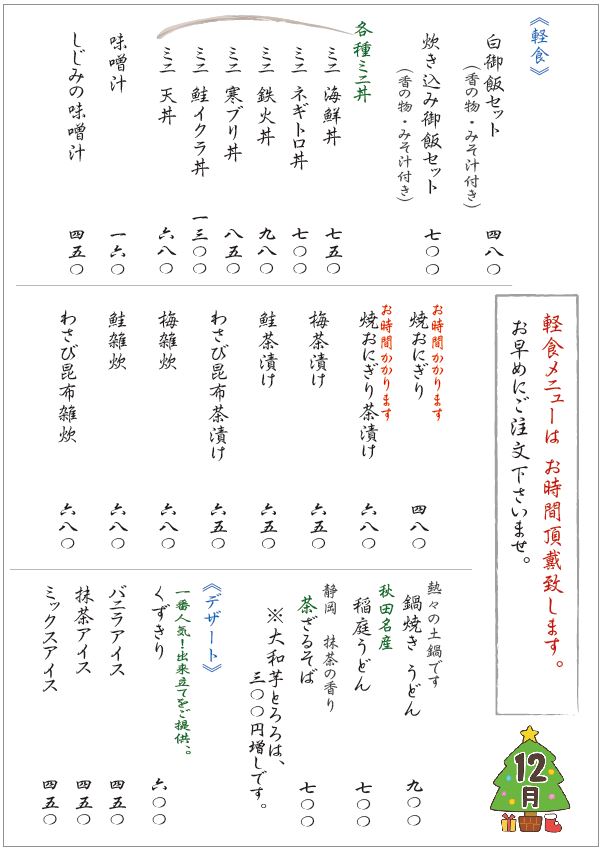 《軽食》
白御飯セット 四八〇
(香の物・みそ汁付き)
炊き込み御飯セット 七〇〇
(香の物・みそ汁付き)
各種ミニ丼
ミニ 海鮮丼 七五〇
ミニ ネギトロ丼 七〇〇
ミニ 鉄火丼 九八〇
ミニ 寒ブリ丼 八五〇
ミニ 鮭イクラ丼 一三〇〇
ミニ 天丼 六八〇
味噌汁 一六〇
しじみの味噌汁 四五〇
軽食メニューは お時間頂戴致します。
お早めにご注文下さいませ。
お時間かかります
焼おにぎり 四八〇
お時間かかります
焼おにぎり茶漬け 六八〇
梅茶漬け 六五〇
鮭茶漬け 六五〇
わさび昆布茶漬け 六五〇
梅雑炊 六八〇
鮭雑炊 六八〇
わさび昆布雑炊 六八〇
熱々の土鍋です
鍋焼き うどん 九〇〇
秋田名産
稲庭うどん 七〇〇
静岡 抹茶の香り
茶ざるそば 七〇〇
※大和芋とろろは、
三〇〇円増しです。
《デザート》
一番人気!出来立てをご提供、。
くずきり 六〇〇
バニラアイス 四五〇
抹茶アイス 四五〇
ミックスアイス 四五〇
12
月